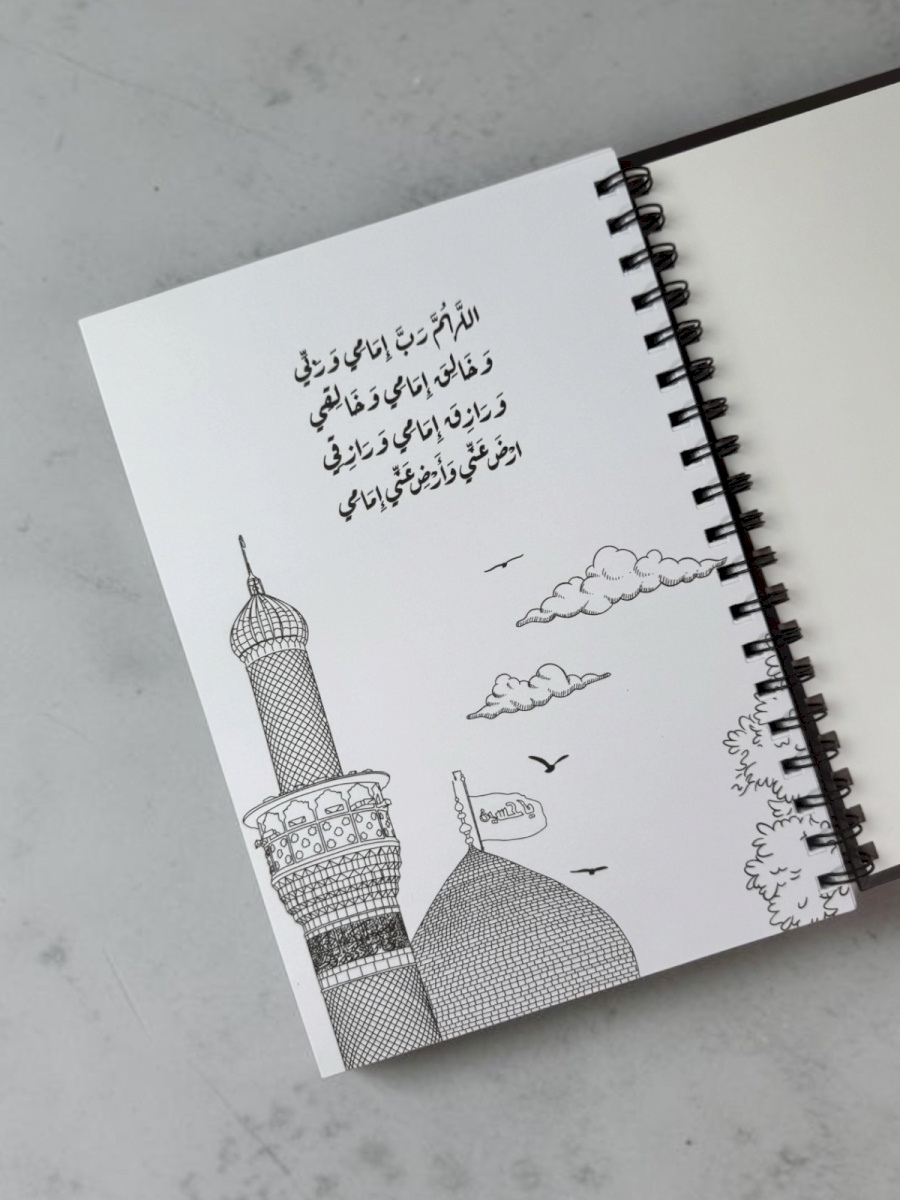 اللَّهُمَّ رَبَّ إِمَامِي وَرَبِّي
وَخَالِقَ إِمَامِي وَخَالِقِي
وَرَازِقَ إِمَامِي وَرَازِقِي
ارْضَ عَنِّي وَأَرْضِ عَنِّي إِمَامِي
ياحسين